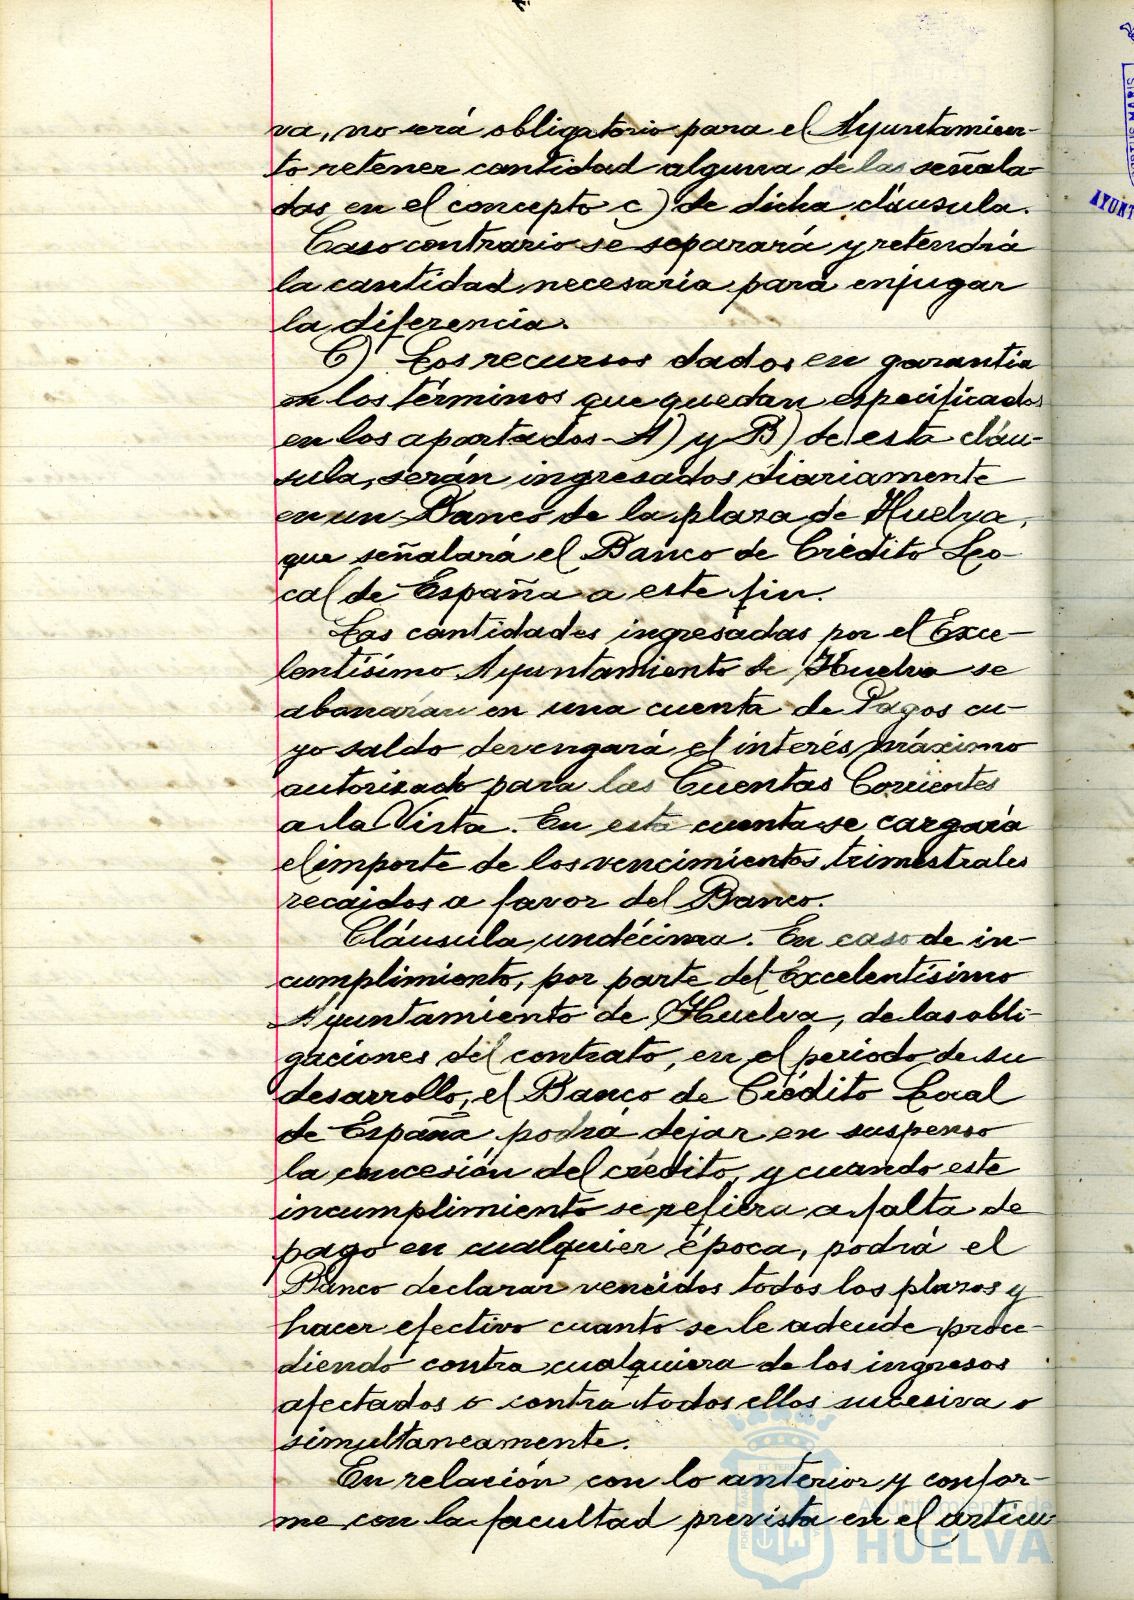 va, no será obligatorio para el Ayuntamien-
to retener cantidad alguna de las señala-
das en el concepto c) de dicha cláusula.
Caso contrario se separará y retendrá
la cantidad necesaria para enjugar
la diferencia.
C) Los recursos dados en garantía
en los términos que quedan especificados
en los apartados A) y B) de esta cláu-
sula, serán ingresados diariamente
en un Banco de la plaza de Huelva,
que señalará el Banco de Crédito Lo-
cal de España a este fin.
Las cantidades ingresadas por el Exce-
lentísimo Ayuntamiento de Huelva se
abonarán en una cuenta de Pagos cu-
yo saldo devengará el interés máximo
autorizado para las Cuentas Corrientes
a la Vista. En esta cuenta se cargará
el importe de los vencimientos trimestrales
recaidos a favor del Banco.
Cláusula undécima. En caso de in-
cumplimiento, por parte del Excelentísimo
Ayuntamiento de Huelva, de las obli-
gaciones del contrato, en el periodo de su
desarrollo, el Banco de Crédito Local
de España podrá dejar en suspenso
la concesión del crédito, y cuando este
incumplimiento se refiera a falta de
pago en cualquier época, podrá el
Banco declarar vencidos todos los plazos y
hacer efectivo cuanto se le adeude proce-
diendo contra cualquiera de los ingresos
afectados o contra todos ellos sucesiva o
simultaneamente.
En relación con lo anterior y confor-
me con la facultad prevista en el artícu
Ayuntamiento de
HUELVA